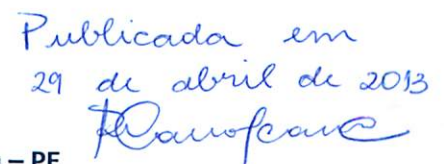 Publicada em
29 de abril de 2013
– PE